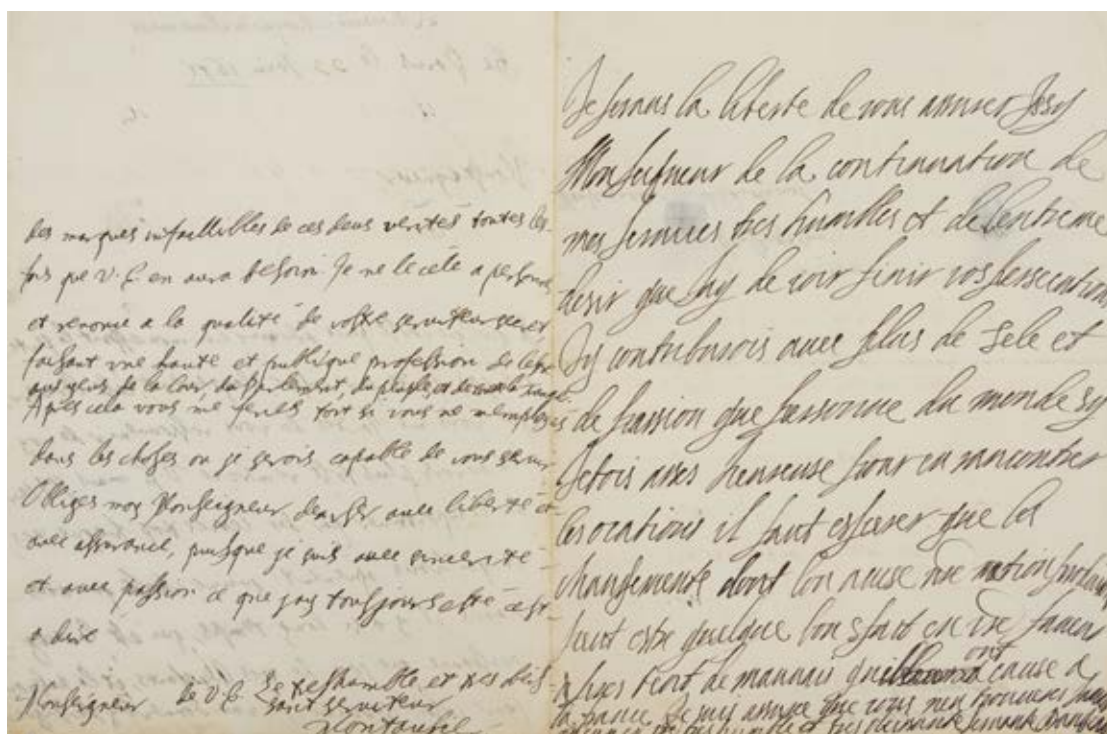 des marques infaillibles de ces deus verités toutes les
fois que V. E. en aura besoin. Je ne le cele a personne
et renonce a la qualité de vostre serviteur secret
faisant une haute et publique profession de l'estre
aus yeus de la Cour, du Parlement, du peuple, et de
Apres cela vous me ferés tort si vous ne m'emploiés
dans les choses ou je serois capable de vous servir
Obligés moy Monseigneur, d'en user avec liberté et
avec asseurance, puisque je suis avec sincerité
et avec passion ce que j'ay tousjours esté c'est
a dire
Monseigneur de V. E. Le tres humble et tres obeis
sant serviteur
Montausier
Je prens la liberte de vous assurer Issy
Monseigneur de la continuation de
mes services tres humbles et de lextreme
desir que jay de voir finir vos persecutions
Jy contriburois avec plus de zele et
de passion que personne du monde sy
jetois ases heureuse pour en rancontrer
les ocations il faut esperer que les
changements dont lon acuse nre nation
peut estre quelque bon efait en vre faveur
apres tent de mauvais quil ont cause a
la France Je suis assuree que vous men trouveres
tres humble et tres